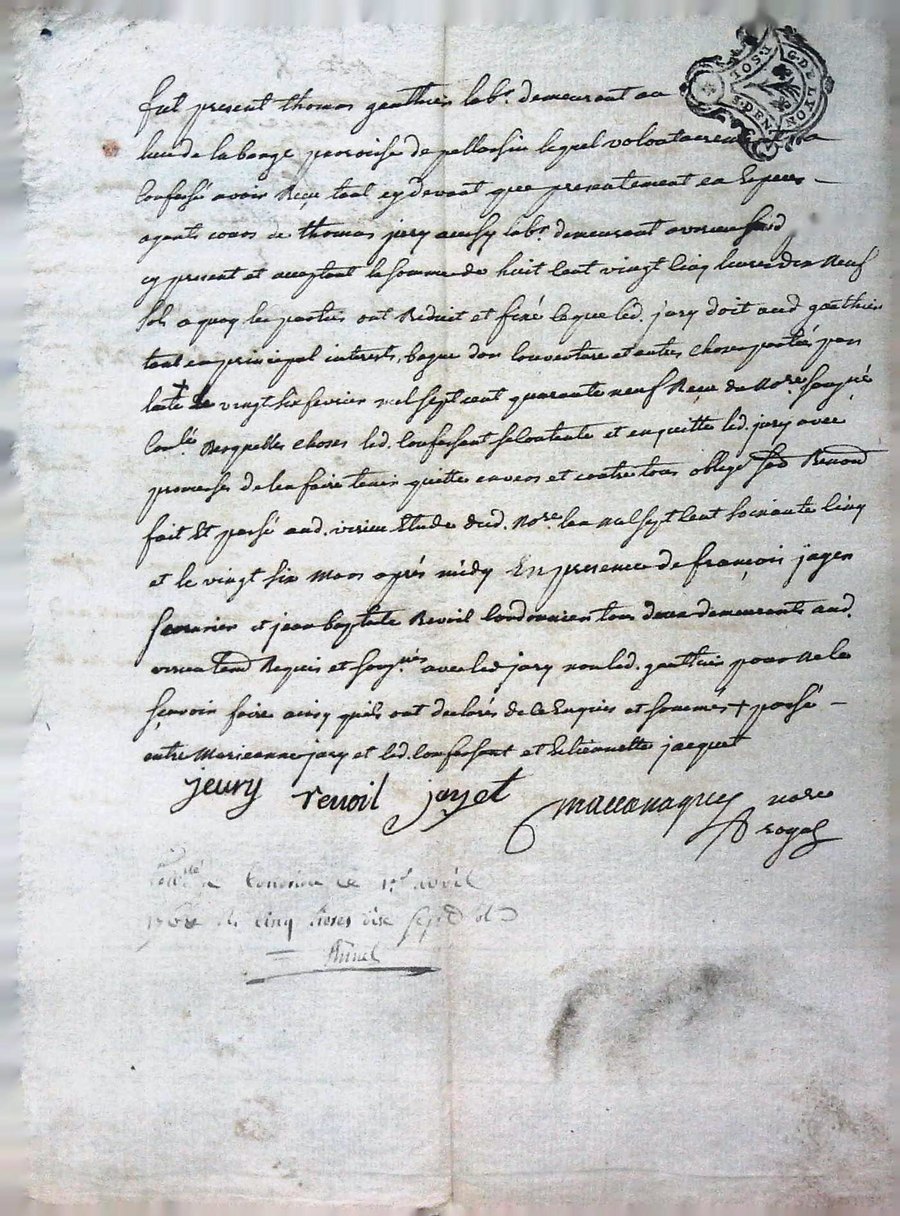 G.DE LYON
1.SOL
3.DEN
fut present thomas gauthier labr. demeurant au
lieu de la barge paroisse de pellussin lequel volontairement a
confessé avoir Reçu tant cy devant que presentement en Especes
agents cours de thomas jury aussy labr. demeurant a virieu
cy present et acceptant la somme de huit cent vingt cinq livres dix neuf
sols a quoy les parties ont Reduit et fixé ce que led. jury doit aud gauthier
tant en principal interests, bague d'or louverture et autres choses portés par
lacte de vingt six fevrier mil sept cent quarante neuf Reçu du nore. soussigné
Conlé. Desquelles choses led. confessant se contente et en quitte led. jury avec
promesses de len faire tenir quitte envers et contre tous oblige Renon
fait Et passé aud. virieu Etude dud. Nore. lan mil sept cent soixante cinq
et le vingt six mars après midy En presence de françois jayet
serrurier et jean baptiste Revoil cordonnier tous deux demeurants aud.
virieu Requis et sousnés avec led. jury non led. gauthier pour ne le
sçavoir faire ainsy quils ont declarés de ce Enquis et sommés + passé
entre Marieanne jury et led. confessant et Etiennette jacquet
jeury revoil jayet
nore
royal
Conlé a Condrieu le 1er avril
cinq livres dix sept s